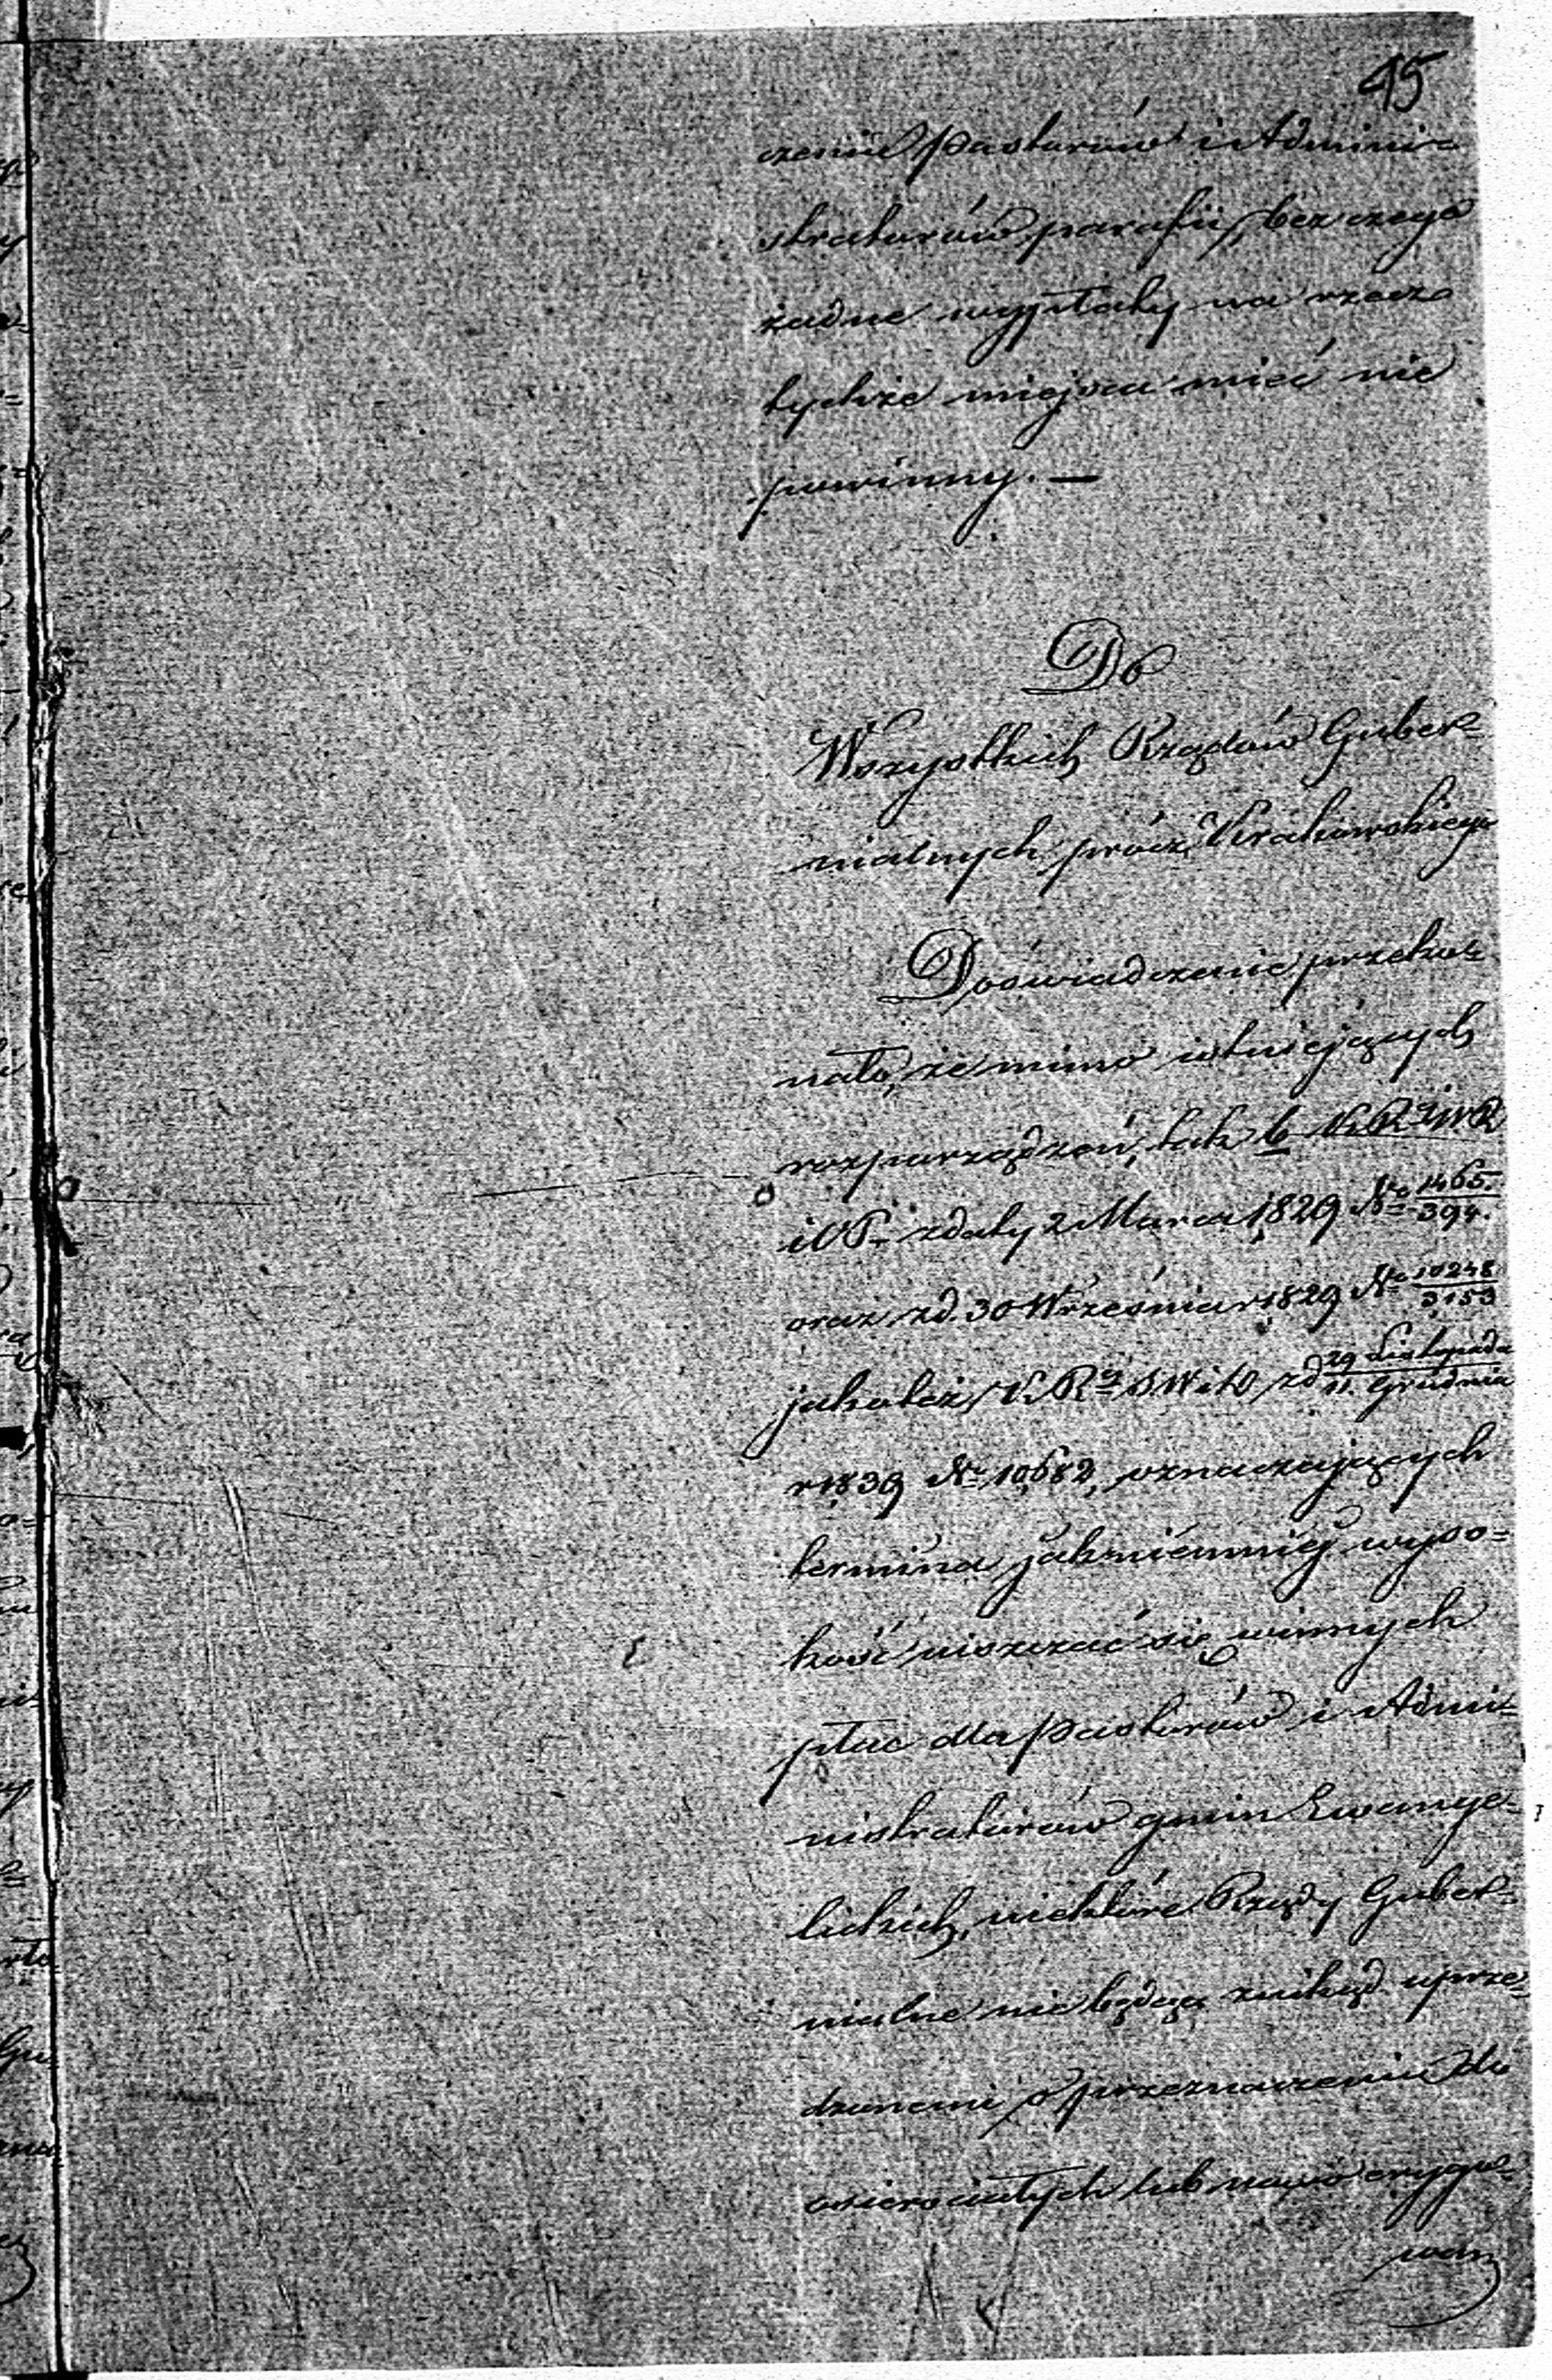 45
czenie Pastorów i Admini=
stratorów parafii, bez czego
żadne wypłaty na rzecz
tychże miejsca mieć nie
powinny. —
Do
Wszystkich Rządów Guber=
nialnych prócz Krakowskiego
Doświadczenie przeko=
nało, że mimo istniejących
rozporządzeń, tak b. K R W R
i O P. z daty 2 Marca 1829 No 1465./394.
oraz z d. 30 Września r 1829 No 10248/3153
jakoteż K R S W i D z d 29 Listopada/11. Grudnia
r 1839 No 10,682, oznaczających
termina jakniemniéj wyso=
kość uiszczać się winnych
płac dla Pastorów i Admi=
nistratorów gmin Ewanye=
lickich, niektóre Rządy Guber=
nialne nie będąc znikąd uprze=
dzonemi o przeznaczeniu do
osierociałych lub nowo erygo=
wan